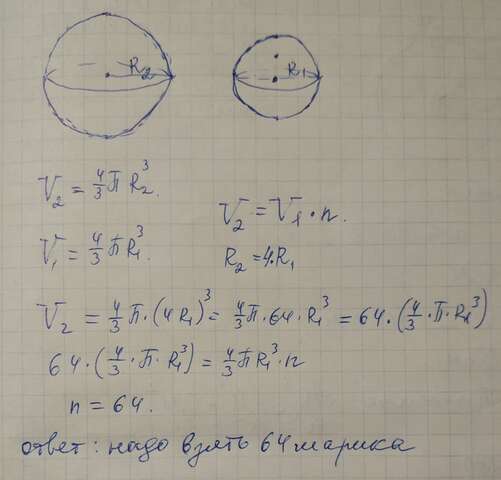 R₂ R₁
V₂ = 4/3 П R₂³.
V₁ = 4/3 П R₁³.
V₂ = V₁ · n.
R₂ = 4·R₁
V₂ = 4/3 П · (4R₁)³ = 4/3 П · 64 · R₁³ = 64 · (4/3 · П · R₁³)
64 · (4/3 · П · R₁³) = 4/3 П R₁³ · n
n = 64.
ответ: надо взять 64 шарика